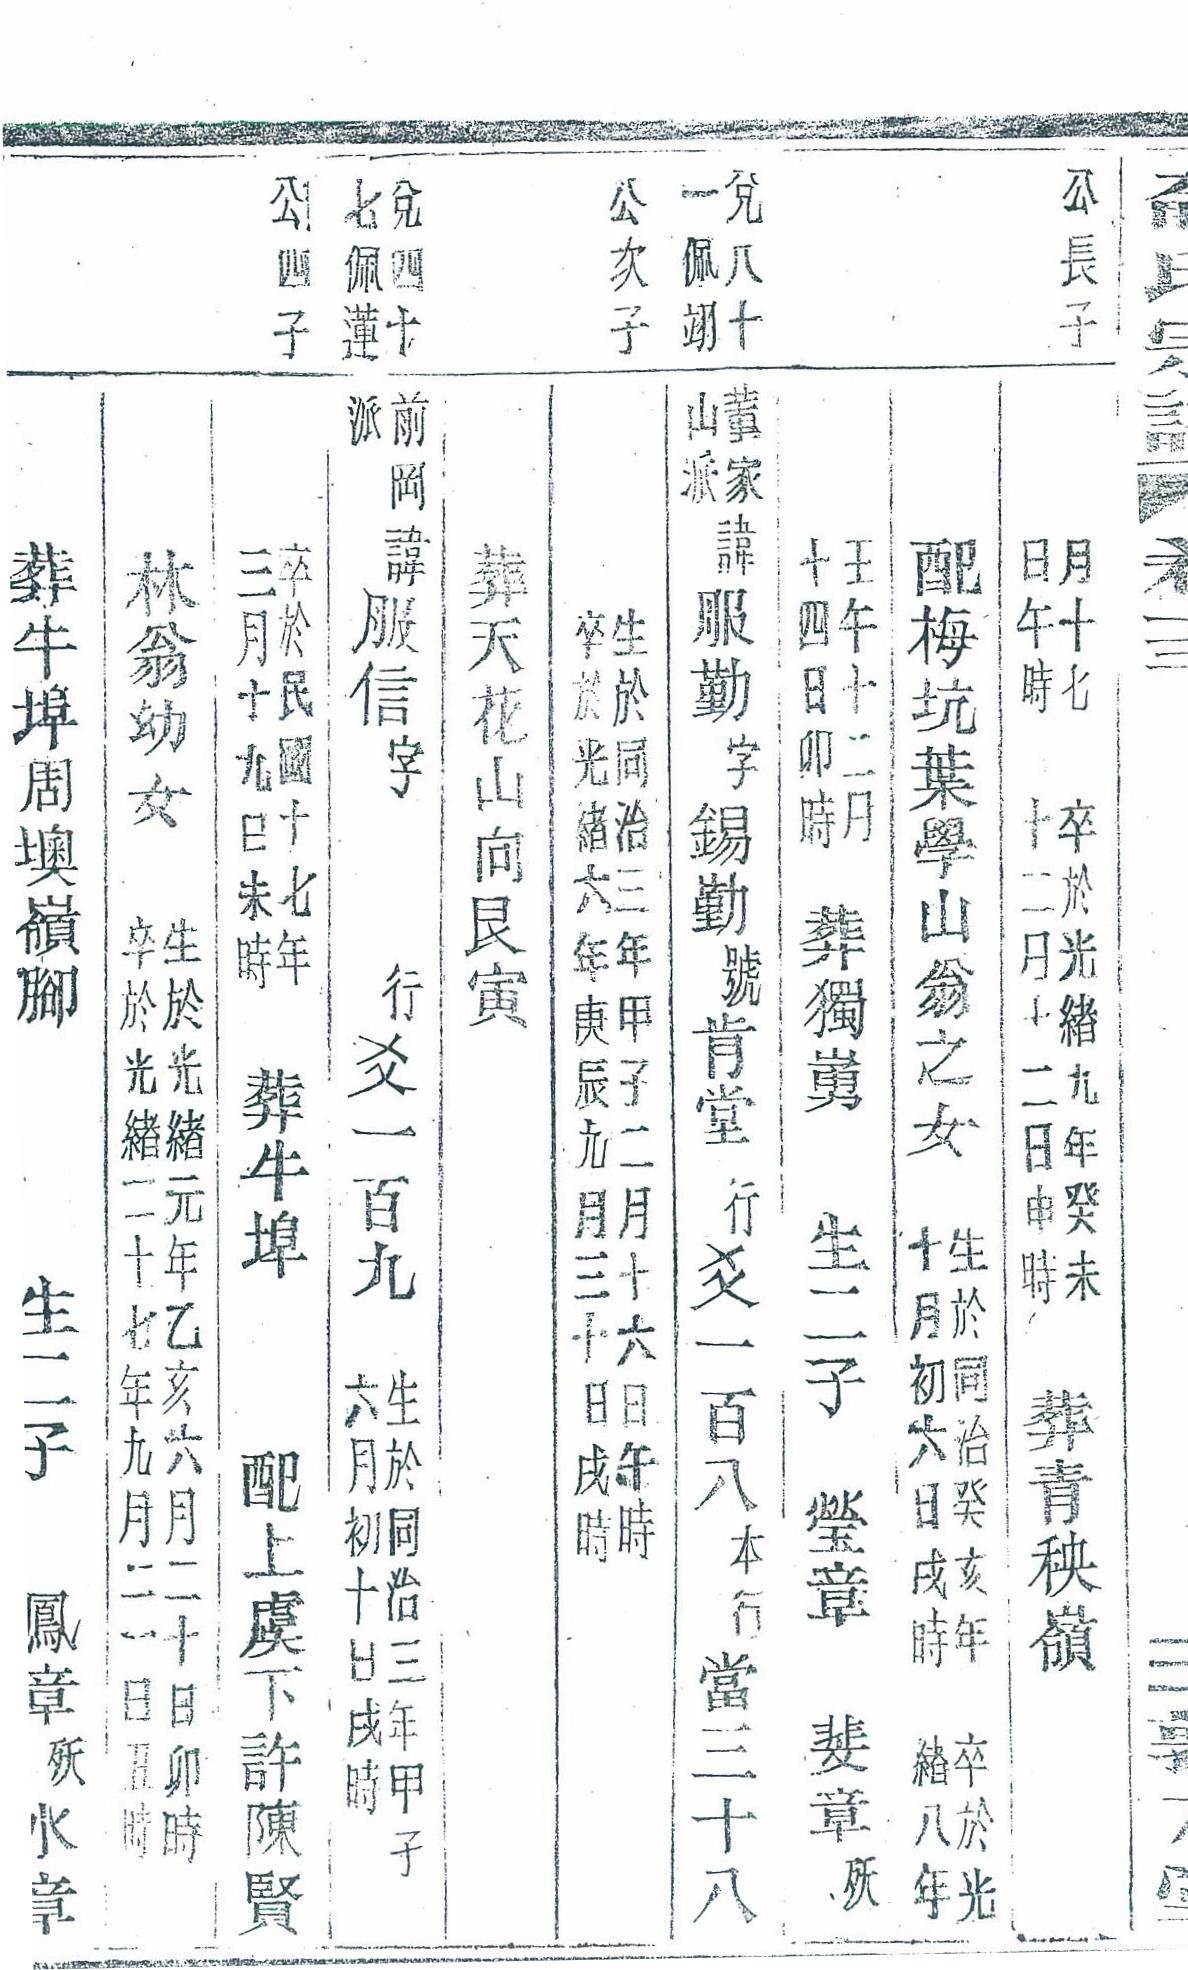 氏宗譜 卷三
公長子
月十七
日午時
卒於光緒九年癸未
十二月十二日申時
葬青秧嶺
配梅坑葉學山翁之女
生於同治癸亥年
十月初六日戌時
卒於光
緒八年
壬午十二月
十四日卯時
葬獨嶲
生二子 瑩章 斐章 殀
兌八十
一佩翊
董家
山派
諱服勤 字錫勤 號肯堂 行爻一百八 本行當三十八
公次子
生於同治三年甲子二月十六日午時
卒於光緒六年庚辰九月三十日戌時
葬天花山向艮寅
兌四十
七佩蓮
前岡
派
諱服信 字 行爻一百九
生於同治三年甲子
六月初十日戌時
公四子
卒於民國十七年
三月十九日未時
葬牛埠 配上虞下許陳賢
林翁幼女
生於光緒元年乙亥六月二十日卯時
卒於光緒二十七年九月二一日丑時
葬牛埠周墺嶺腳 生二子 鳳章 殀 水章